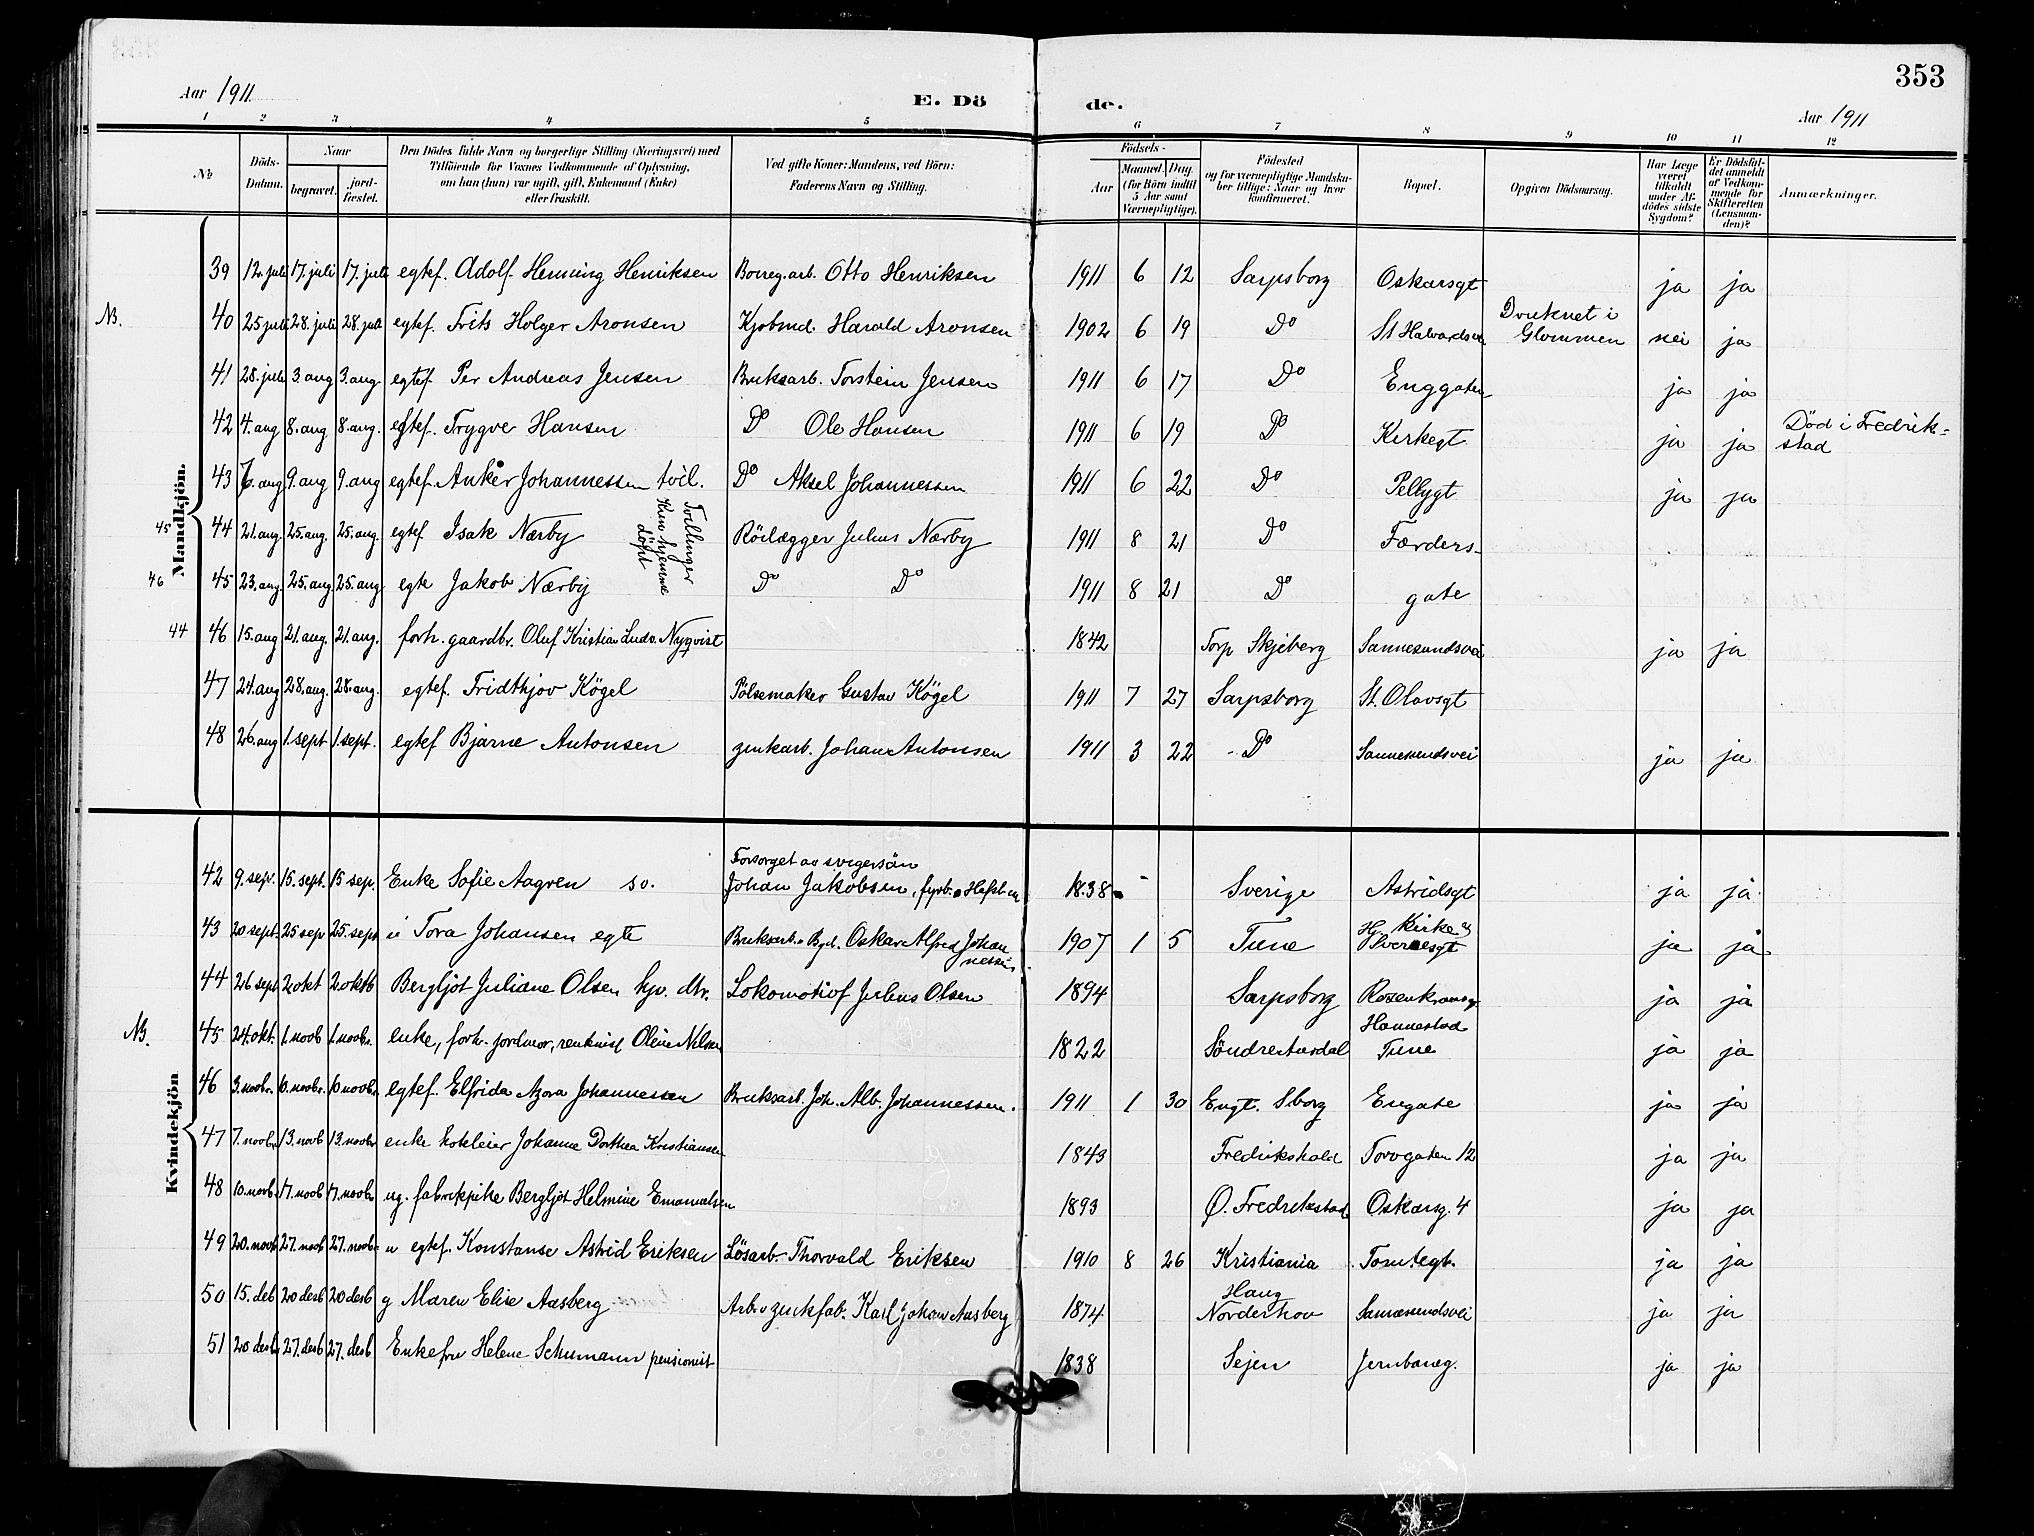 353
Aar 1911
E. Döde.
Aar 1911
1 2 3 4 5 6 7 8 9 10 11 12
No.
Döds-Datum.
Naar
begravet.
jord-fæstet.
Den Dödes fulde Navn og borgerlige Stilling (Næringsvei) med
Tilföiende for Voxnes Vedkommende af Oplysning,
om han (hun) var ugift, gift, Enkemand (Enke)
eller fraskilt.
Ved gifte Koner: Mandens, ved Börn:
Faderens Navn og Stilling.
Födsels-
Aar
Maaned. Dag
(for Börn indtil
5 Aar samt
Værnepligtige).
Födested
og for værnepligtige Mandsku-
ber tillige: Naar og hvor
konfirmeret.
Bopæl.
Opgiven Dödsaarsag.
Har Læge
været
tilkaldt
under Af-
dödes sidste
Sygdom?
Er Dödsfal-
det anmeldt
af Vedkom-
mende for
Skifteretten
(Lensman-
den)?
Anmærkninger.
Mandkjön.
39 12. juli 17. juli 17. juli egtef. Adolf Henning Henriksen Borreg.arb. Otto Henriksen 1911 6 12 Sarpsborg Oskarsgt ja ja
NB. 40 25 juli 28. juli 28. juli egtef. Frits Holger Aronsen Kjøbmd. Harald Aronsen 1902 6 19 Do St Halvardsv Druknet i
Glommen nei ja
41 28. juli 3. aug 3. aug. egtef. Per Andreas Jensen Bruksarb. Torstein Jensen 1911 6 17 Do Enggaten ja ja
42 4. aug 8. aug 8. aug. egtef. Trygve Hansen Do Ole Hansen 1911 6 19 Do Kirkegt. ja ja Død i Fredrik=
stad
43 6. aug 9. aug 9. aug egtef. Anker Johannessen tvil. Do Aksel Johannessen 1911 6 22 Do Pellygt ja ja
45 44 21. aug. 25. aug. 25. aug. egtef Isak Nærby Rörlægger Julius Nærby 1911 8 21 Do Færders-
Tvillinger
Kun hjemme
döpt
46 45 23. aug. 25. aug 25. aug. egte Jakob Nærby Do Do 1911 8 21 Do gate
44 46 15. aug 21. aug. 21. aug. forh. gaardbr. Oluf Kristian Ludv. Nyqvist 1842 Torp Skjeberg Sannesundsvei ja ja
47 24. aug 28. aug. 28. aug. egtef. Fridthjov Kögel Pölsemaker Gustav Kögel 1911 7 27 Sarpsborg St. Olavsgt
48 26. aug 1. sept 1. sept. egtef Bjarne Antonsen zinkarb. Johan Antonsen 1911 3 22 Do Sannesundsvei ja ja
Kvindekjön
42 9. sep. 15. sept. 15 sep. Enke Sofie Aagren so. Forsørget av svigersön
Johan Jakobsen, fyrb. 1838 Sverige Astridsgt ja ja
43 20 sept. 25 sep 25. sept Tora Johansen egte Bruksarb. Oskar Alfred Johan
nessen 1907 1 5 Tune Hj. Kirke
ja ja
44 26 sept 2 okt 2 oktb Bergljot Juliane Olsen hjv. dtr. Lokomotivf Julius Olsen 1894 Sarpsborg Rosenkransg ja ja
NB. 45 24. okt. 1. novb 1. novbr. enke, forh. jordmor, Oline Nilsen 1822 Söndre Aurdal Hannestad
Tune ja ja
46 3. novbr. 10. novbr. 10 novbr. egtef. Elfrida Azora Johannessen Bruksarb. Joh. Alb. Johannessen. 1911 1 30 Engt. Sborg Engate ja ja
47 7. novbr. 13. novb 13. novbr enke hokleier Johanne Dorthea Kristiansen 1843 Fredrikshald Torvgaten 12 ja ja
48 10. novb. 17. novb 17. novbr ug. fabrikpike Bergljot Helmine Emanuelsen 1893 Ø. Fredrikstad Oskarsg. 4 ja ja
49 20. novb 27. novb 27. novbr u egtef. Konstanse Astrid Eriksen Løsarb. Thorvald Eriksen 1910 8 26 Kristiania Tomtegt. ja ja
50 15. deb 20 desb 20 desb g Maren Elise Aasberg Arb. v zinkfab. Karl Johan Aasberg 1874 Haug
Norderhov Sannesundsvei ja ja
51 20 desb. 27. desb 27. desb Enkefru Helene Schumann pensionist 1838 Sejen Jernbaneg. ja ja